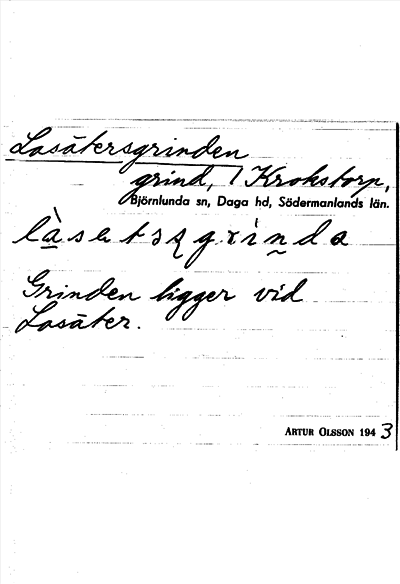 Lasätersgrinden
grind, / Krokstorp,
Björnlunda sn, Daga hd, Södermanlands län.
Grinden ligger vid
Lasäter.
ARTUR OLSSON 1943